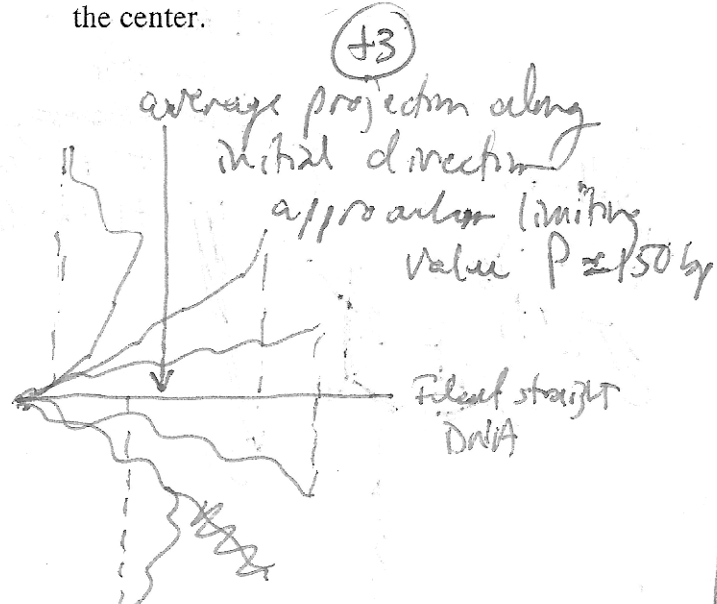 the center.
+3
average projection along
initial direction
approaches limiting
value P ≈ 150 bp
Ideal straight
DNA